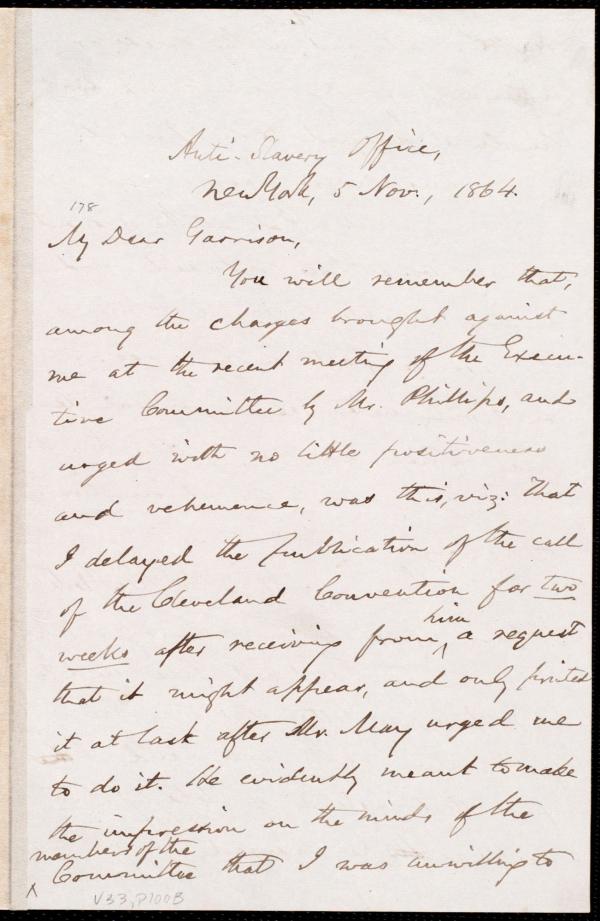 Anti-Slavery Office,
New York, 5 Nov., 1864.
178
My Dear Garrison,
You will remember that,
among the charges brought against
me at the recent meeting of the Execu-
tive Committee by Mr. Phillips, and
urged with no little positiveness
and vehemence, was this, viz: That
I delayed the publication of the call
of the Cleveland Convention for two
weeks after receiving from him ^ a request
that it might appear, and only printed
it at last after Mr. May urged me
to do it. He evidently meant to make
the impression on the minds of the
members of the
^ Committee that I was unwilling to
V33, P100B